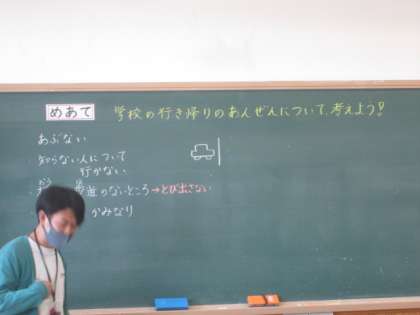 めあて 学校の行き帰りのあんぜんについて、考えよう!
あぶない
知らない人について
行かない。
道のないところ→とび出さない
かみなり